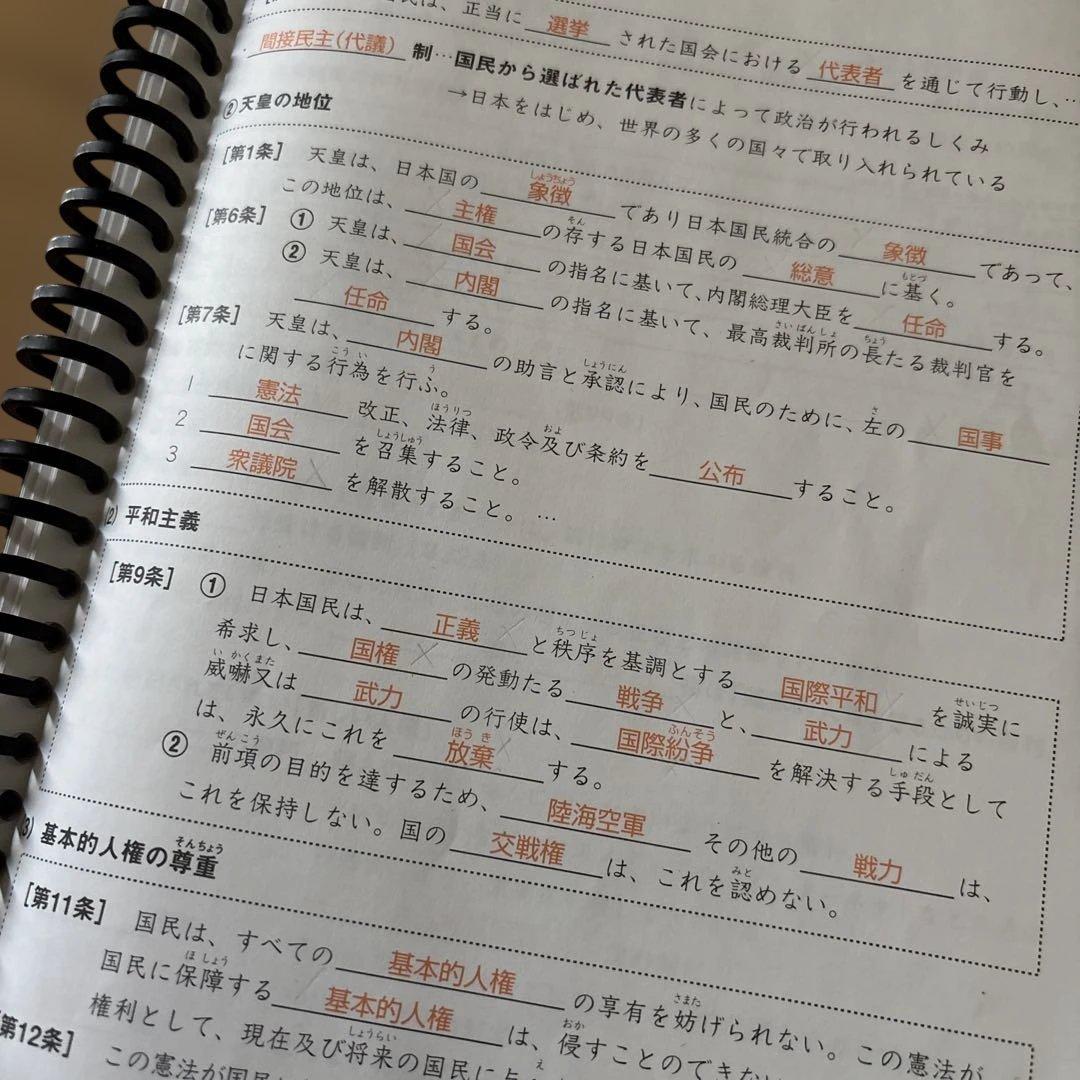 民は、正当に 選挙 された国会における 代表者 を通じて行動し、…
間接民主(代議) 制…国民から選ばれた代表者によって政治が行われるしくみ
→日本をはじめ、世界の多くの国々で取り入れられている
②天皇の地位
[第1条] 天皇は、日本国の 象徴 であり日本国民統合の 象徴 であって、
この地位は、 主権 の存する日本国民の 総意 に基く。
[第6条] ① 天皇は、 国会 の指名に基いて、内閣総理大臣を 任命 する。
② 天皇は、 内閣 の指名に基いて、最高裁判所の長たる裁判官を
任命 する。
[第7条] 天皇は、 内閣 の助言と承認により、国民のために、左の 国事
に関する行為を行ふ。
1 憲法 改正、法律、政令及び条約を 公布 すること。
2 国会 を召集すること。
3 衆議院 を解散すること。…
(2) 平和主義
[第9条] ① 日本国民は、 正義 と秩序を基調とする 国際平和 を誠実に
希求し、 国権 の発動たる 戦争 と、 武力 による
威嚇又は 武力 の行使は、 国際紛争 を解決する手段として
は、永久にこれを 放棄 する。
② 前項の目的を達するため、 陸海空軍 その他の 戦力 は、
これを保持しない。国の 交戦権 は、これを認めない。
(3) 基本的人権の尊重
[第11条] 国民は、すべての 基本的人権 の享有を妨げられない。この憲法が
国民に保障する 基本的人権 は、侵すことのできない
権利として、現在及び将来の国民に与え
[第12条] この憲法が国民に